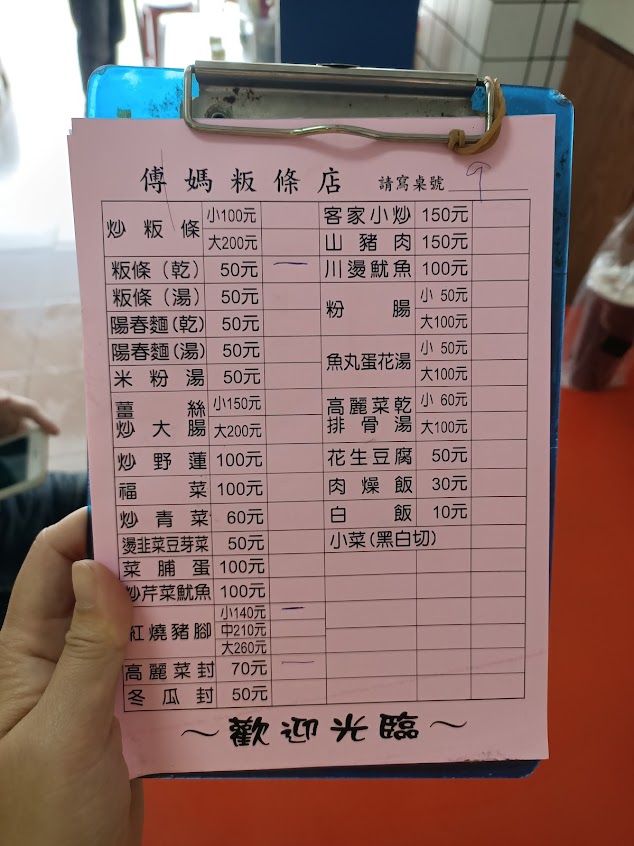 傅媽粄條店 請寫桌號 9
炒粄條 小100元
大200元
粄條(乾) 50元 一
粄條(湯) 50元
陽春麵(乾) 50元
陽春麵(湯) 50元
米粉湯 50元
薑絲炒大腸 小150元
大200元
炒野蓮 100元
福菜 100元
炒青菜 60元
燙韭菜豆芽菜 50元
菜脯蛋 100元
炒芹菜魷魚 100元
紅燒豬腳 小140元 一
中210元
大260元
高麗菜封 70元 一
冬瓜封 50元
客家小炒 150元
山豬肉 150元
川燙魷魚 100元
粉腸 小 50元
大100元
魚丸蛋花湯 小 50元
大100元
高麗菜乾排骨湯 小 60元
大100元
花生豆腐 50元
肉燥飯 30元
白飯 10元
小菜(黑白切)
~歡迎光臨~